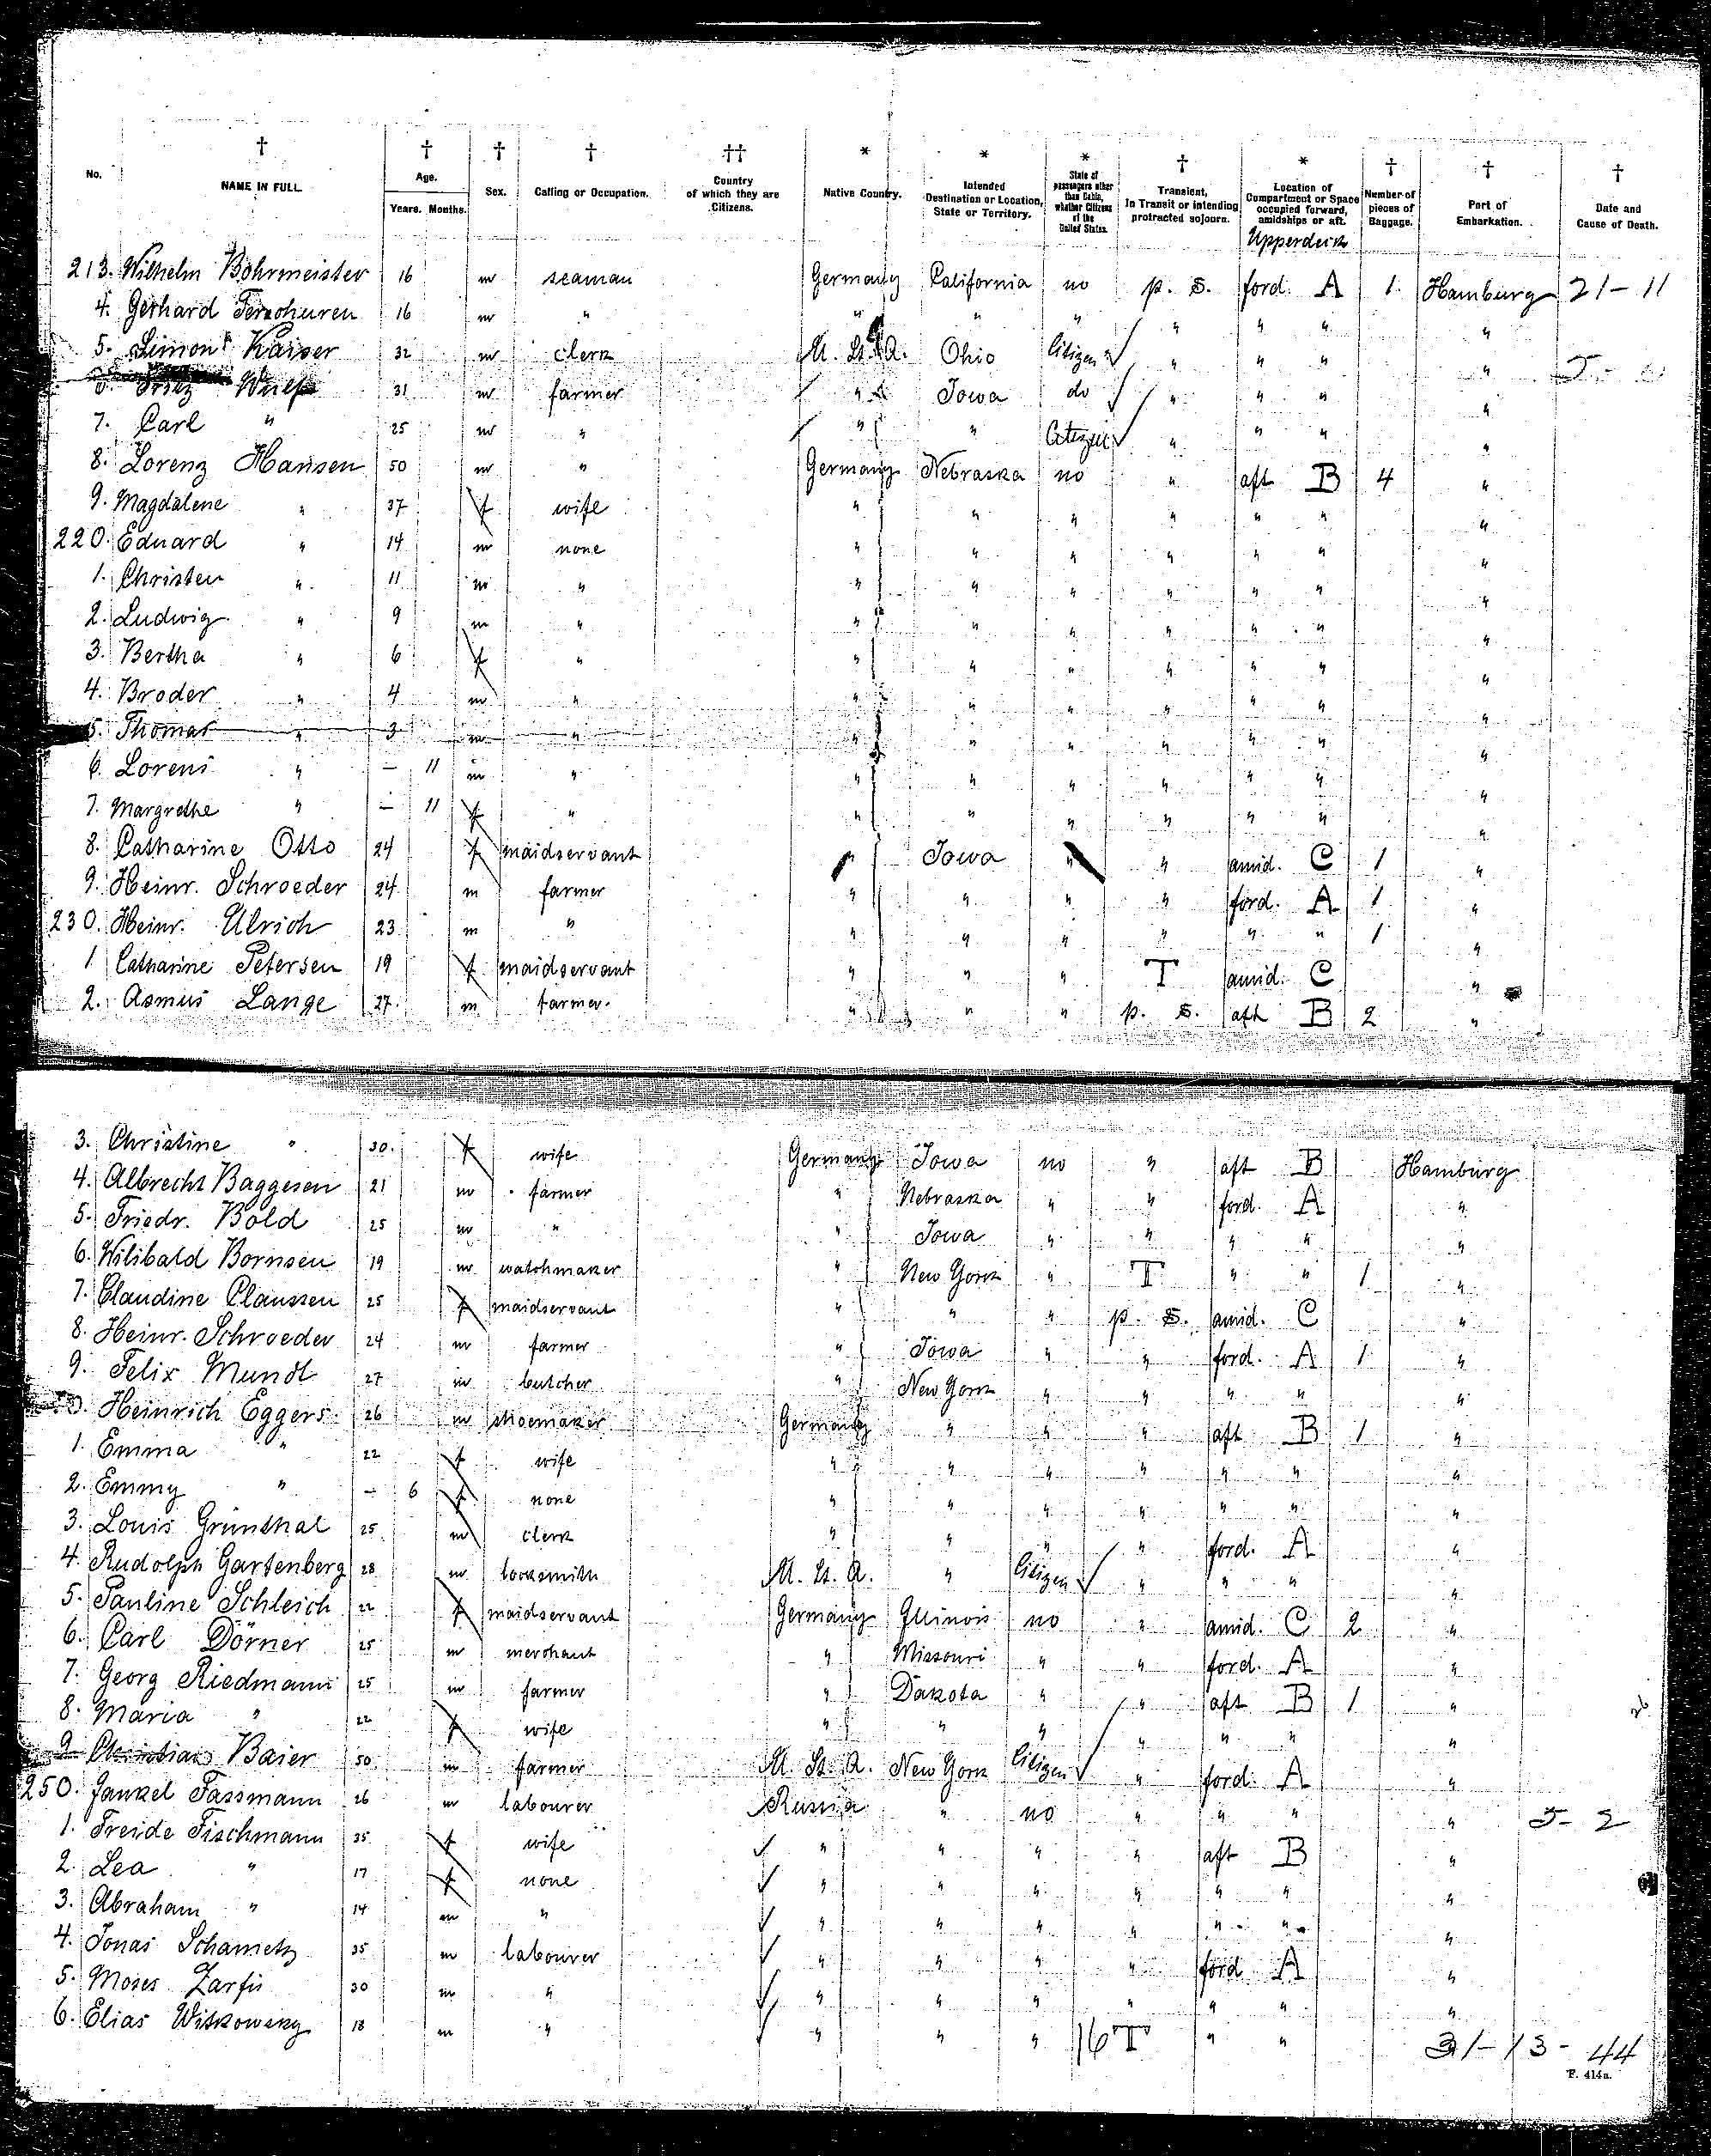 No. † NAME IN FULL. † Age. Years. Months. † Sex. † Calling or Occupation. †† Country of which they are Citizens. * Native Country. * Intended Destination or Location, State or Territory. * State of passengers other than Cabin, whether Citizens of the United States. † Transient, In Transit or intending protracted sojourn. * Location of Compartment or Space occupied forward, amidships or aft. † Number of pieces of Baggage. † Port of Embarkation. † Date and Cause of Death.
Upperdeck
213. Wilhelm Bohrmeister 16 m seaman Germany California no p. s. ford. A 1 Hamburg 21-11
4. Gerhard 16 m " " " " " " " "
5. Simon Kaiser 32 m clerk U. St. A. Ohio Citizen " " " "
Wulf 31 m farmer " Iowa do " " " "
7. Carl " 25 m " " " Citizen " " " "
8. Lorenz Hansen 50 m " Germany Nebraska no " aft B 4 "
9. Magdalene " 37 f wife " " " " " " "
220. Eduard " 14 m none " " " " " " "
1. Christen " 11 m " " " " " " " "
2. Ludwig " 9 m " " " " " " " "
3. Bertha " 6 f " " " " " " " "
4. Broder " 4 m " " " " " " " "
5. Thomas " 3 m " " " " " " " "
6. Lorens " — 11 m " " " " " " " "
7. Margrethe " — 11 f " " " " " " " "
8. Catharine Otto 24 f maidservant " Iowa " " amid. C 1 "
9. Heinr. Schroeder 24 m farmer " " " " ford. A 1 "
230. Heinr. Ulrich 23 m " " " " " " " 1 "
1 Catharine Petersen 19 f maidservant " " " T amid. C "
2. Asmus Lange 27. m farmer. " " " p. s. aft B 2 "
3. Christine " 30. f wife Germany Iowa no " aft B Hamburg
4. Albrecht Baggesen 21 m farmer " Nebraska " " ford. A "
5. Friedr. Bold 25 m " " Iowa " " " " "
6. Wilibald Bornsen 19 m watchmaker " New York " T " " 1 "
7. Claudine Claussen 25 f maidservant " " " p. s. amid. C "
8. Heinr. Schroeder 24 m farmer " Iowa " " ford. A 1 "
9. Felix Mundt 27 m butcher " New York " " " " "
0. Heinrich Eggers 26 m shoemaker Germany " " " aft B 1 "
1. Emma " 22 f wife " " " " " " "
2. Emmy " — 6 f none " " " " " " "
3. Louis Grünthal 25 m clerk " " " " ford. A "
4. Rudolph Gartenberg 28 m locksmith U. St. A. " Citizen " " " "
5. Pauline Schleich 22 f maidservant Germany Illinois no " amid. C 2 "
6. Carl Dörner 25 m merchant " Missouri " " ford. A "
7. Georg Riedmann 25 m farmer " Dakota " " aft B 1 "
8. Maria " 22 f wife " " " " " " "
9 Christian Baier 50 m farmer U. St. A. New York Citizen " ford. A "
250. Jankel Fassmann 26 m labourer Russia " no " " " " 5-2
1. Freide Fischmann 35 f wife " " " " aft B "
2. Lea " 17 f none " " " " " " "
3. Abraham " 14 m " " " " " " " "
4. Jonas Schametz 35 m labourer " " " " ford A "
5. Moses Zarfis 30 m " " " " " " " "
6. Elias Witkowsky 18 m " " " " 16 T " " 31-13-44
F. 414a.